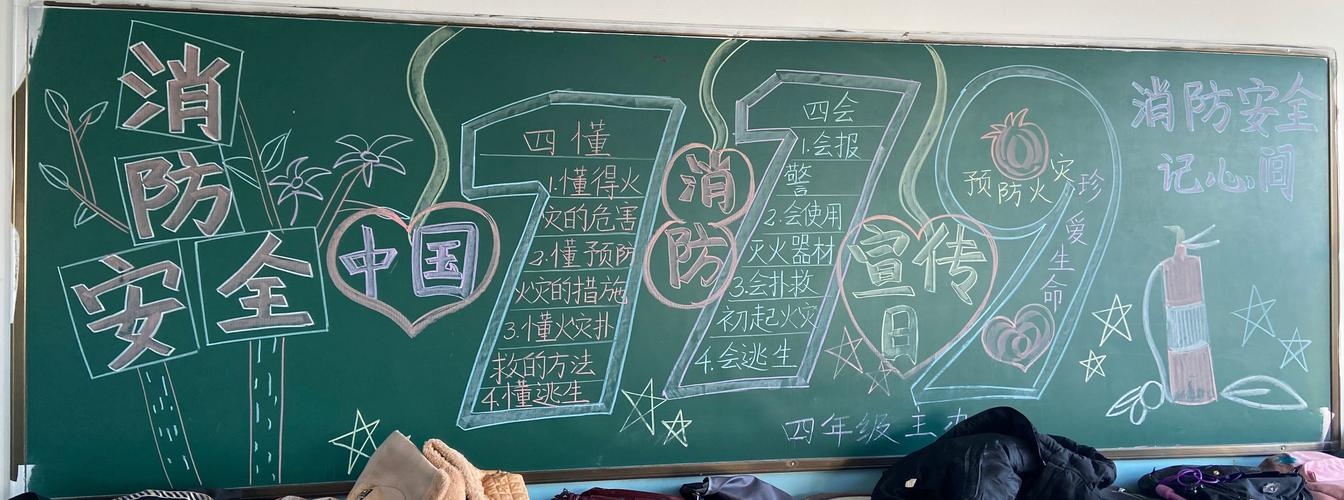 消
防
安全
中国
四懂
1.懂得火
灾的危害
2.懂预防
火灾的措施
3.懂火灾扑
救的方法
4.懂逃生
消
防
四会
1.会报
警
2.会使用
灭火器材
3.会扑救
初起火灾
4.会逃生
宣传
日
预防火灾
珍爱生命
消防安全
记心间
四年级主办
119